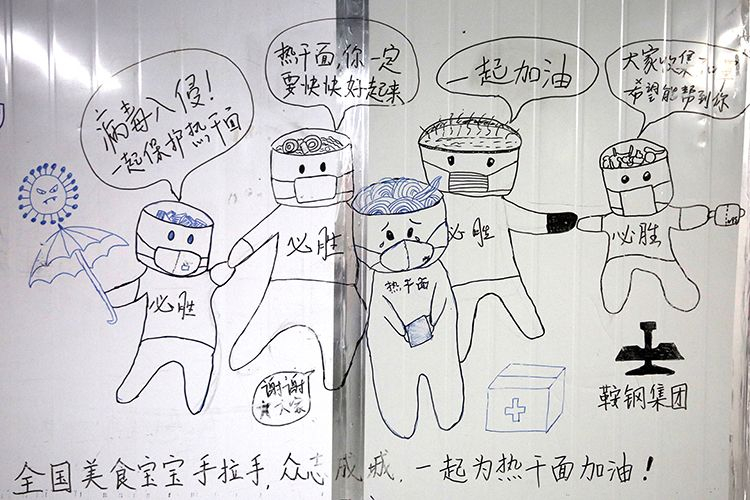 病毒入侵!
一起保护热干面
热干面,你一定
要快快好起来
一起加油
大家收集
希望能帮到你
必胜
必胜
热干面
必胜
必胜
谢谢
大家
鞍钢集团
全国美食宝宝手拉手,众志成城,一起为热干面加油!